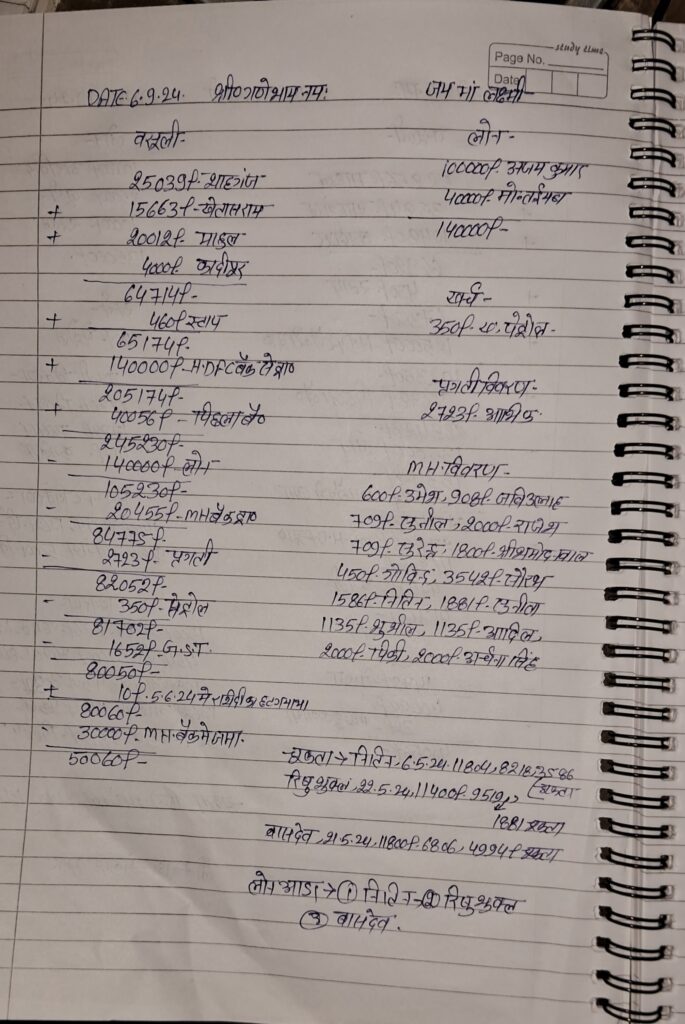 study time
Page No.
Date
DATE 6.9.24. श्री गणेशाय नमः जय मां लक्ष्मी
वसूली- लोन-
25039f- शाहगंज 100000f. अजय कुमार
+ 15663f- खेतासराय 40000f. मो.
+ 20012f- माहुल 140000f-
4000f.
64714f- खर्च-
+ 460f स्टाप 350f. पेट्रोल-
65174f-
+ 140000f- H.DFC बैंक से प्रा० प्रगती विवरण-
205174f- 2723f-
+ 40056f- पिछला बै०
245230f-
- 140000f- लोन MH. विवरण-
105230f- 600f. उमेश, 908f.
- 20455f- MH बैंक प्रा० 709f- सुनील, 2000f- राजेश
84775f- 709f- सुरेन्द्र, 1800f-
- 2723f- प्रगती 450f- गोविन्द, 3542f-
82052f- 1586f- नितिन, 1881f- सुनीता
- 350f- पेट्रोल 1135f- सुशील, 1135f- आदिल,
81702f- 2000f- पिंकी, 2000f- अर्चना सिंह
- 1652f- G.S.T.
80050f-
+ 10f. 5.6.24 मे
80060f-
- 30000f- MH. बैंक मे जमा.
50060f- चुकता → नितिन, 6.5.24, 11804, 8218, 3586 चुकता
रिषु शुक्ला, 22.5.24, 11400f. 9519,
1881 चुकता
वासदेव, 21.5.24, 11800f. 6806, 4994f चुकता
लोन → ① नितिन ② रिषु शुक्ल
③ वासदेव.